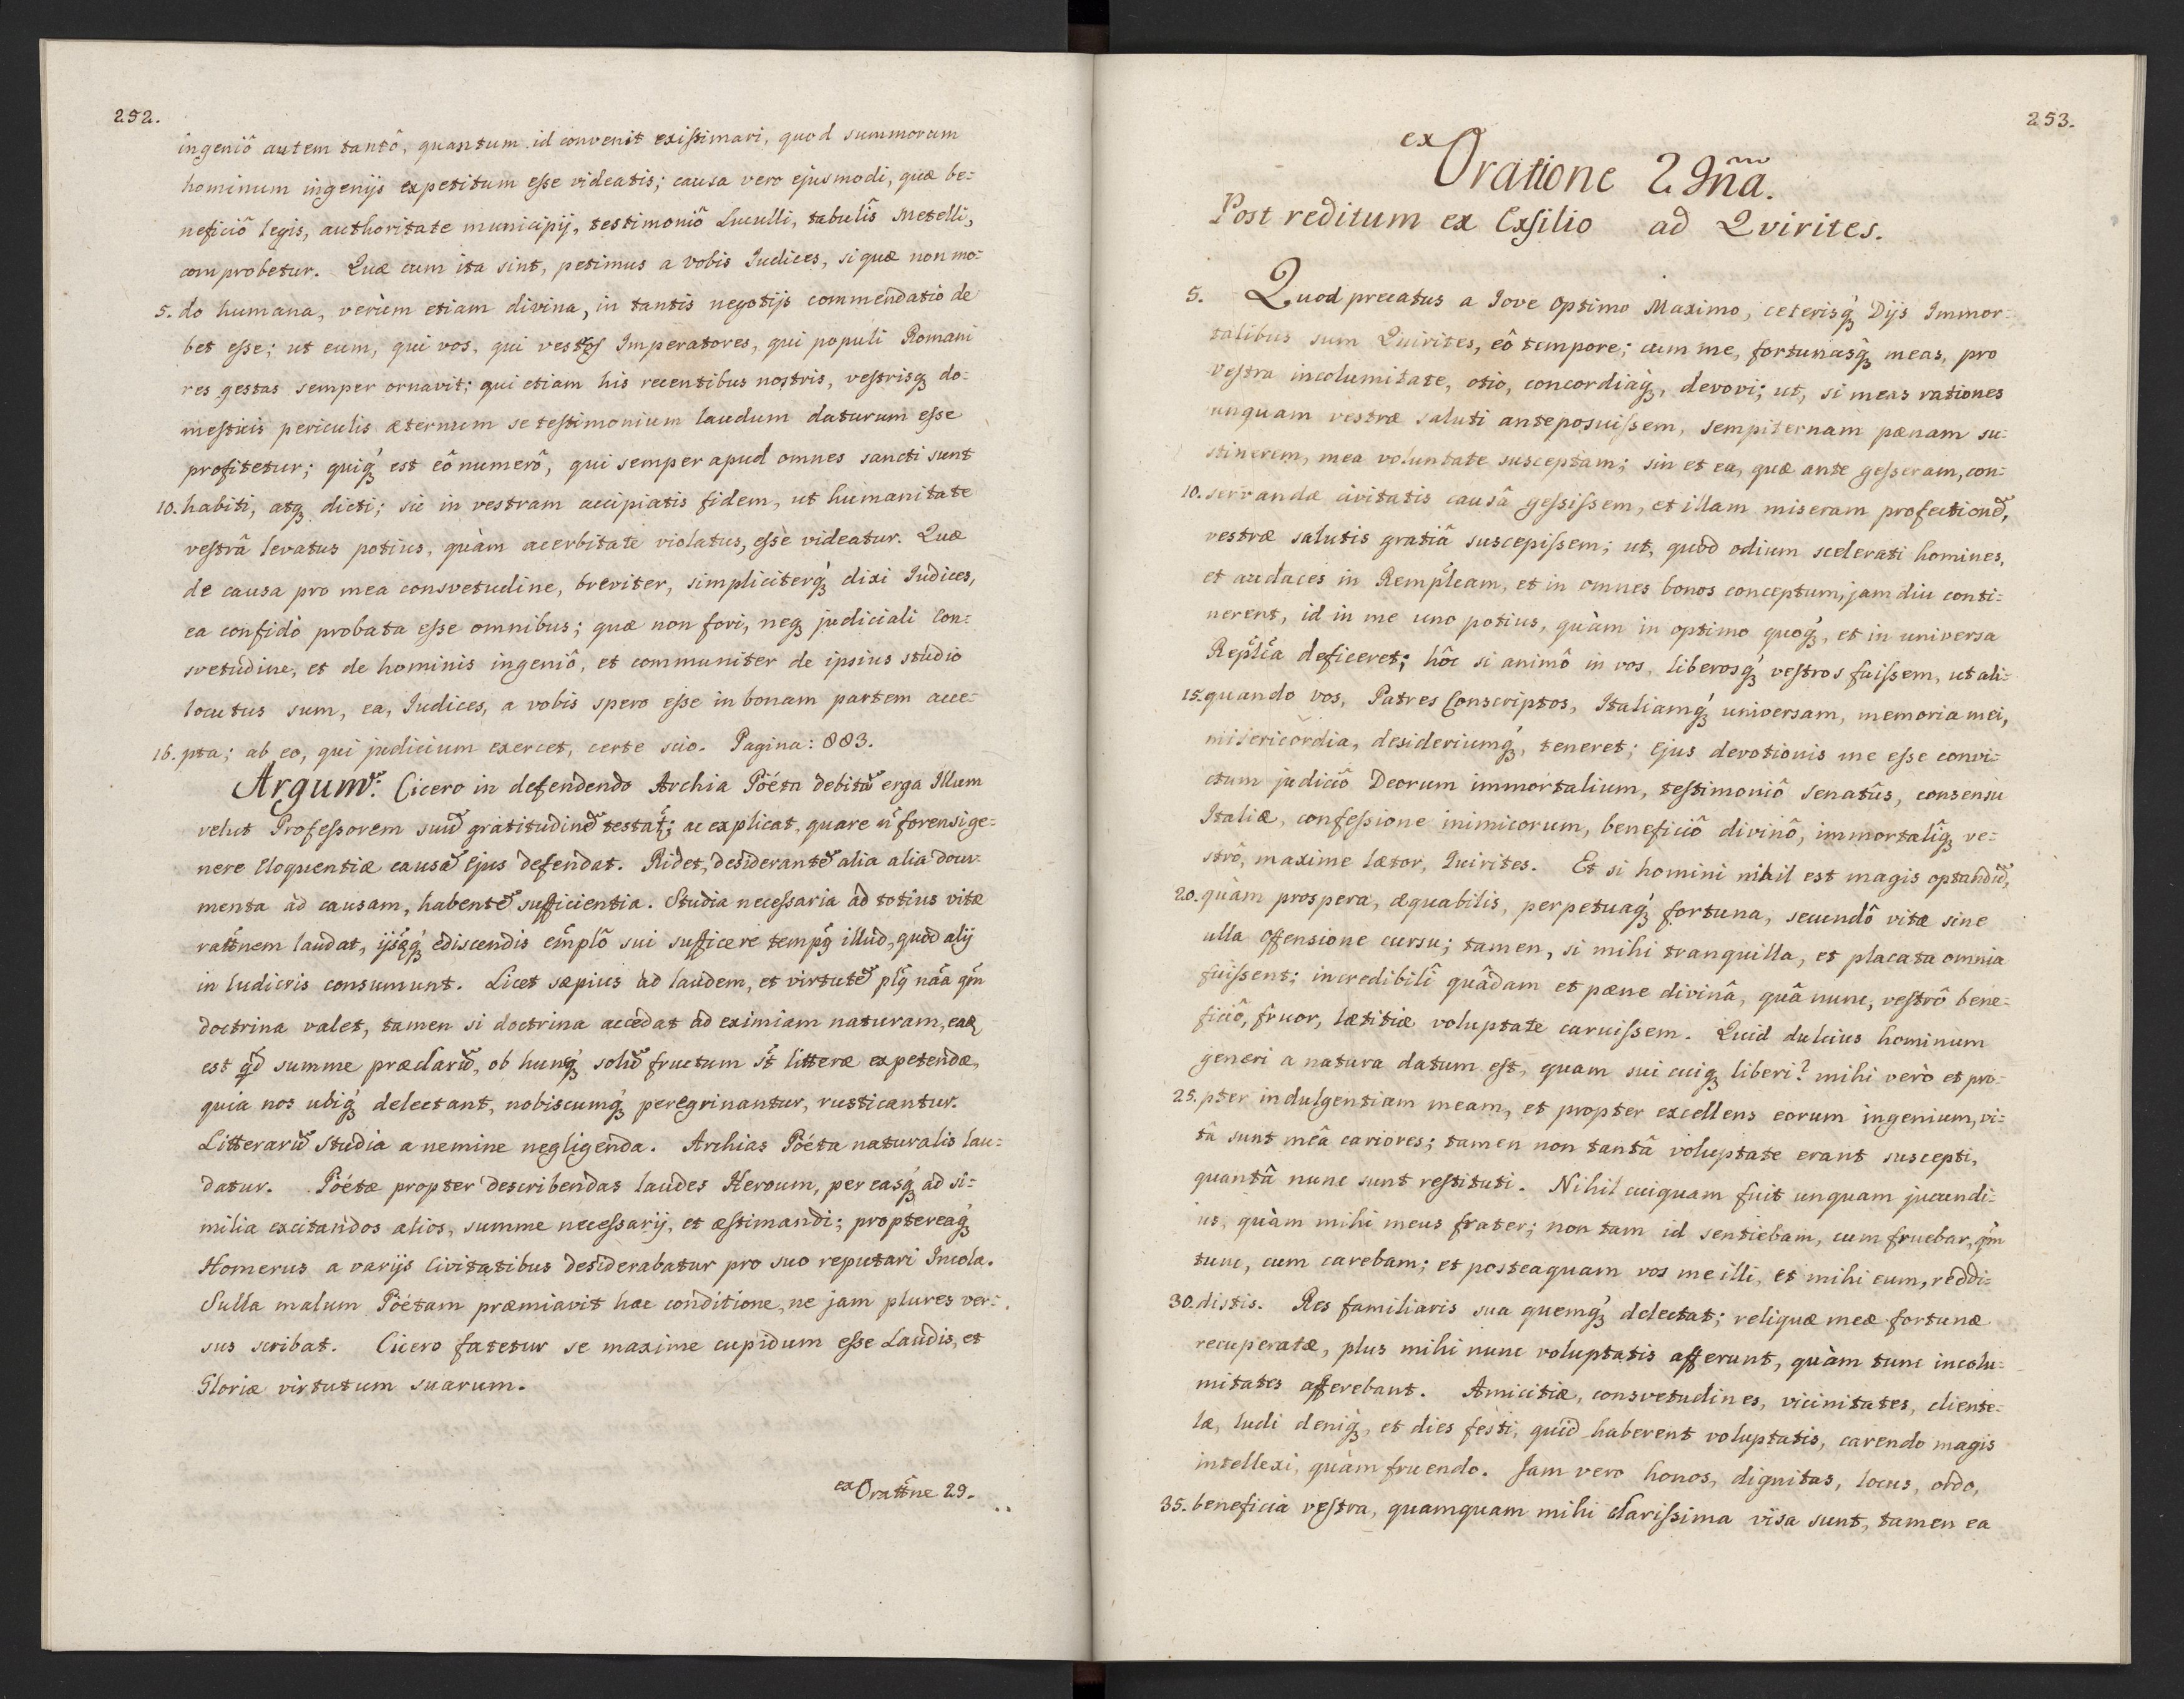 252.
ingeniô autem tantô, quantum id convenit existimari, quod summorum
hominum ingenijs expetitum esse videatis; causa vero ejusmodi, quæ be=
neficiô legis, authoritate municipij, testimoniô Luculli, tabulîs Metelli,
comprobetur. Quæ cum ita sint, petimus a vobis Iudices, si quæ non mo=
5. do humana, verùm etiam divina, in tantis negotijs commendatio de
bet esse; ut eum, qui vos, qui vestros Imperatores, qui populi Romani
res gestas semper ornavit; qui etiam his recentibus nostris, vestrisqꝫ do=
mesticis periculis æternum se testimonium laudum daturum esse
profitetur; quiqꝫ́ est eô numerô, qui semper apud omnes sancti sunt
10. habiti, atqꝫ dicti; sic in vestram accipiatis fidem, ut humanitate
vestrâ levatus potius, quàm acerbitate violatus, esse videatur. Quæ
de causa pro mea consvetudine, breviter, simpliciterqꝫ́ dixi Iudices,
ea confido probata esse omnibus; quæ non fori, neqꝫ judiciali con=
svetudine, et de hominis ingeniô, et communiter de ipsius studio
locutus sum, ea, Iudices, a vobis spero esse in bonam partem acce=
16. pta; ab eo, qui judicium exercet, certe scio. Pagina: 883.
Argum. Cicero in defendendo Archia Pöéta debita erga Illum
velut Professorem suu gratitudine testat; ac explicat, quare ñ forensi ge=
nere Eloquentiæ causa Ejus defendat. Ridet, desiderante alia alia docu=
menta ad causam, habente sufficientia. Studia necessaria ad totius vitæ
rattnem laudat, ijsqꝫ́ ediscendis emplô sui sufficere temp9 illud, quod alij
in ludicris consumunt. Licet sæpius ad laudem, et virtute pl9 nãa qm
doctrina valet, tamen si doctrina accedat ad eximiam naturam, ea
est qd summe præclaru, ob hunqꝫ́ solu fructum st litteræ expetendæ,
quia nos ubiqꝫ́ delectant, nobiscumqꝫ́ peregrinantur, rusticantur.
Litteraru studia a nemine negligenda. Archias Pöéta naturalis lau=
datur. Pöétæ propter describendas laudes Heroum, per easqꝫ́ ad si=
milia excitandos alios, summe necessarij, et æstimandi; proptereaqꝫ́
Homerus a varijs Civitatibus desiderabatur pro suo reputari Incola.
Sulla malum Pöétam præmiavit hac conditione, ne jam plures ver=
sus scribat. Cicero fatetur se maxime cupidum esse Laudis, et
Gloriæ virtutum suarum.
ex Orattne 29.
253.
ex Oratione 29na.
Post reditum ex Exsilio ad Qvirites.
5. Quod precatus a Iove Optimo Maximo, ceterisqꝫ́ Dijs Immor=
talibus sum Quirites, eô tempore; cum me, fortunasqꝫ́ meas, pro
vestra incolumitate, otio, concordiaqꝫ́, devovi; ut, si meas rationes
unquam vestræ saluti anteposuissem, sempiternam pænam su=
stinerem, mea voluntate susceptam; sin et ea, quæ ante gesseram, con=
10. servandæ civitatis causâ gessissem, et illam miseram profectione,
vestræ salutis gratiâ suscepissem; ut, quod odium scelerati homines,
et audaces in Rempleam, et in omnes bonos conceptum, jam diu conti=
nerent, id in me uno potius, quàm in optimo quoqꝫ́, et in universa
Replca deficeret; hôc si animô in vos, liberosqꝫ́ vestros fuissem, ut ali=
15. quando vos, Patres Conscriptos, Italiamqꝫ́ universam, memoria mei,
misericordia, desideriumqꝫ́, teneret; Ejus devotionis me esse convi=
ctum judiciô Deorum immortalium, testimoniô Senatûs, consensu
Italiæ, confessione inimicorum, beneficiô divinô, immortalîqꝫ ve=
strô, maxime lætor, Quirites. Et si homini nihil est magis optandu,
20. quàm prospera, æquabilis, perpetuaqꝫ́ fortuna, secundô vitæ sine
ulla offensione cursu; tamen, si mihi tranquilla, et placata omnia
fuissent; incredibilî quâdam et pæne divinâ, quâ nunc, vestrô bene=
ficiô, fruor, lætitiæ voluptate caruissem. Quid dulcius hominum
generi a natura datum est, quam sui cuiqꝫ liberi? mihi verò et pro=
25. pter indulgentiam meam, et propter excellens eorum ingenium, vi=
tâ sunt meâ cariores; tamen non tantâ voluptate erant suscepti,
quantâ nunc sunt restituti. Nihil cuiquam fuit unquam jucundi=
us, quàm mihi meus frater; non tam id sentiebam, cum fruebar, qm
tunc, cum carebam; et posteaquam vos me illi, et mihi eum, reddi=
30. distis. Res familiaris sua quemqꝫ́ delectat; reliquæ meæ fortunæ
recuperatæ, plus mihi nunc voluptatis afferunt, quàm tunc incolu=
mitates afferebant. Amicitiæ, consvetudines, vicinitates, cliente=
læ, ludi deniqꝫ, et dies festi, quid haberent voluptatis, carendo magis
intellexi, quàm fruendo. Jam vero honos, dignitas, locus, ordo,
35. beneficia vestra, quamquam mihi clarissima visa sunt, tamen ea